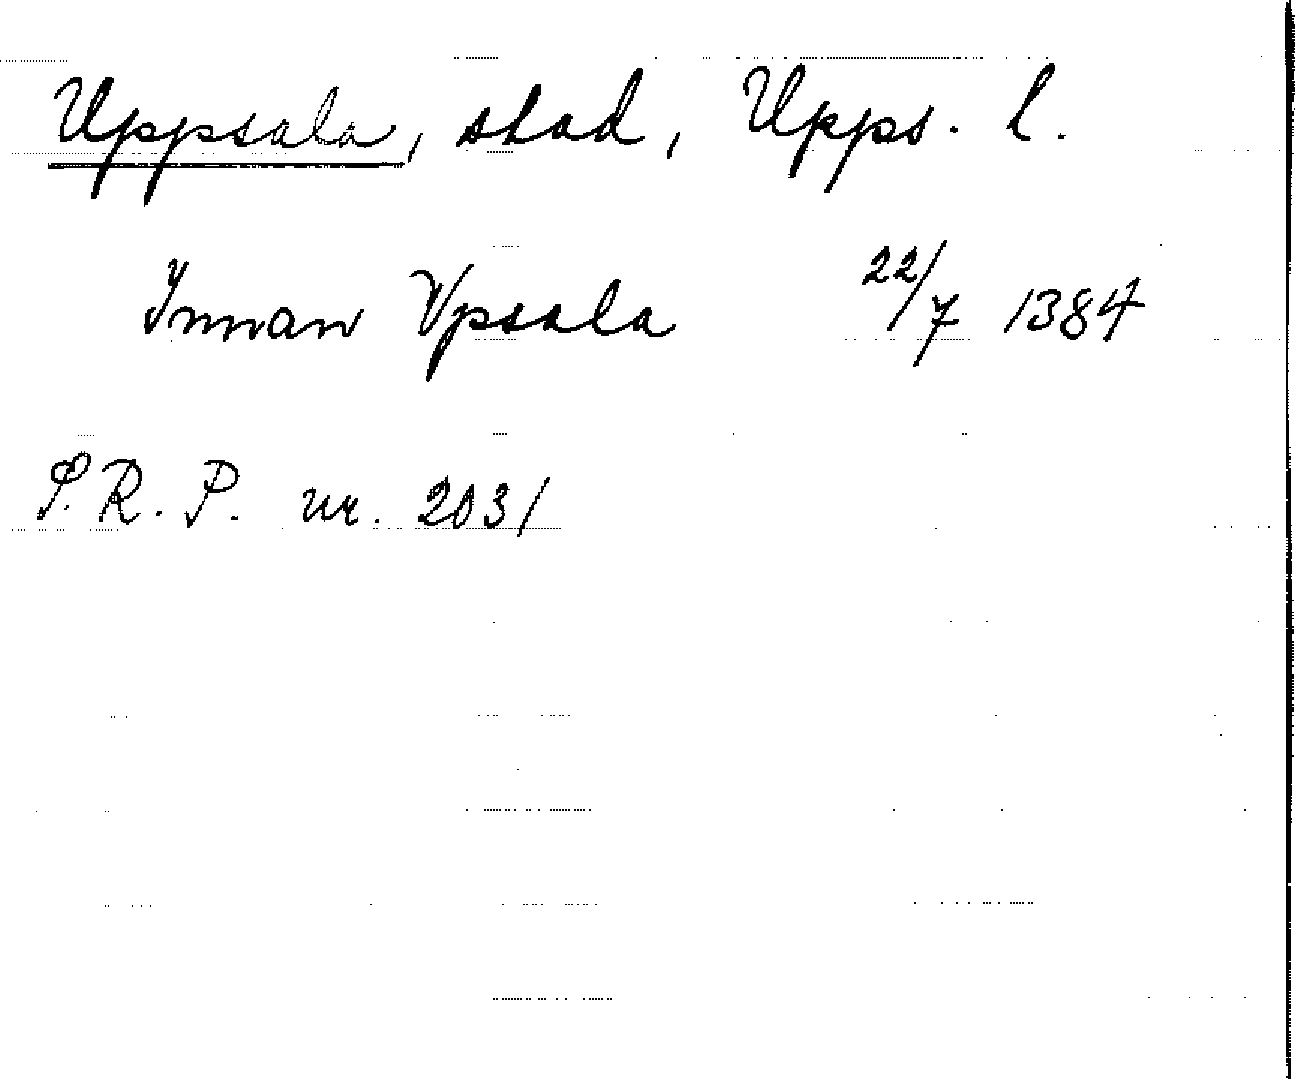 Uppsala, stad, Upps. l.
Innan Vpsala 22/7 1384
S.R.P. nr. 2031